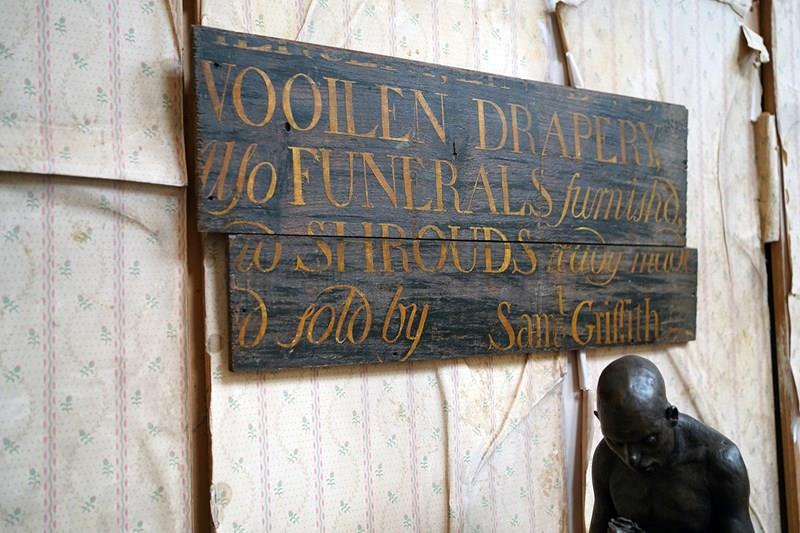 WOOLLEN DRAPERY,
Also FUNERALS furnish'd,
SHROUDS ready made
sold by Saml Griffith